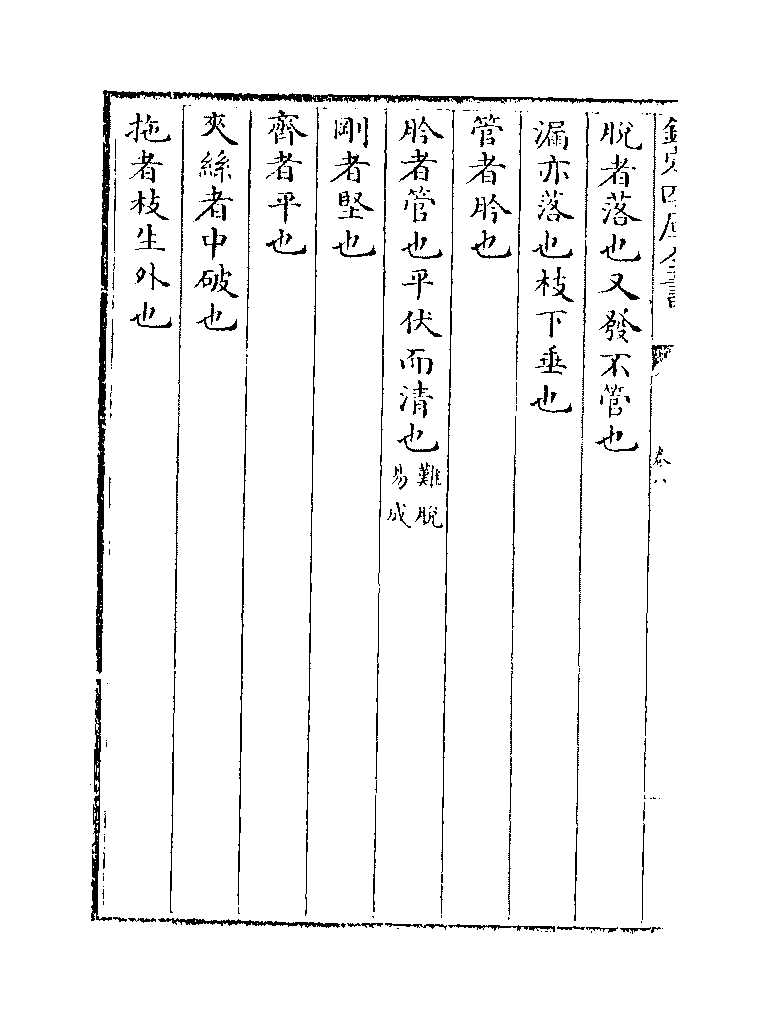 欽定四庫全書　卷八
脫者落也又發不管也
漏亦落也枝下垂也
管者肣也
肣者管也平伏而清也難脫易成
剛者堅也
齊者平也
夾絲者中破也
拖者枝生外也